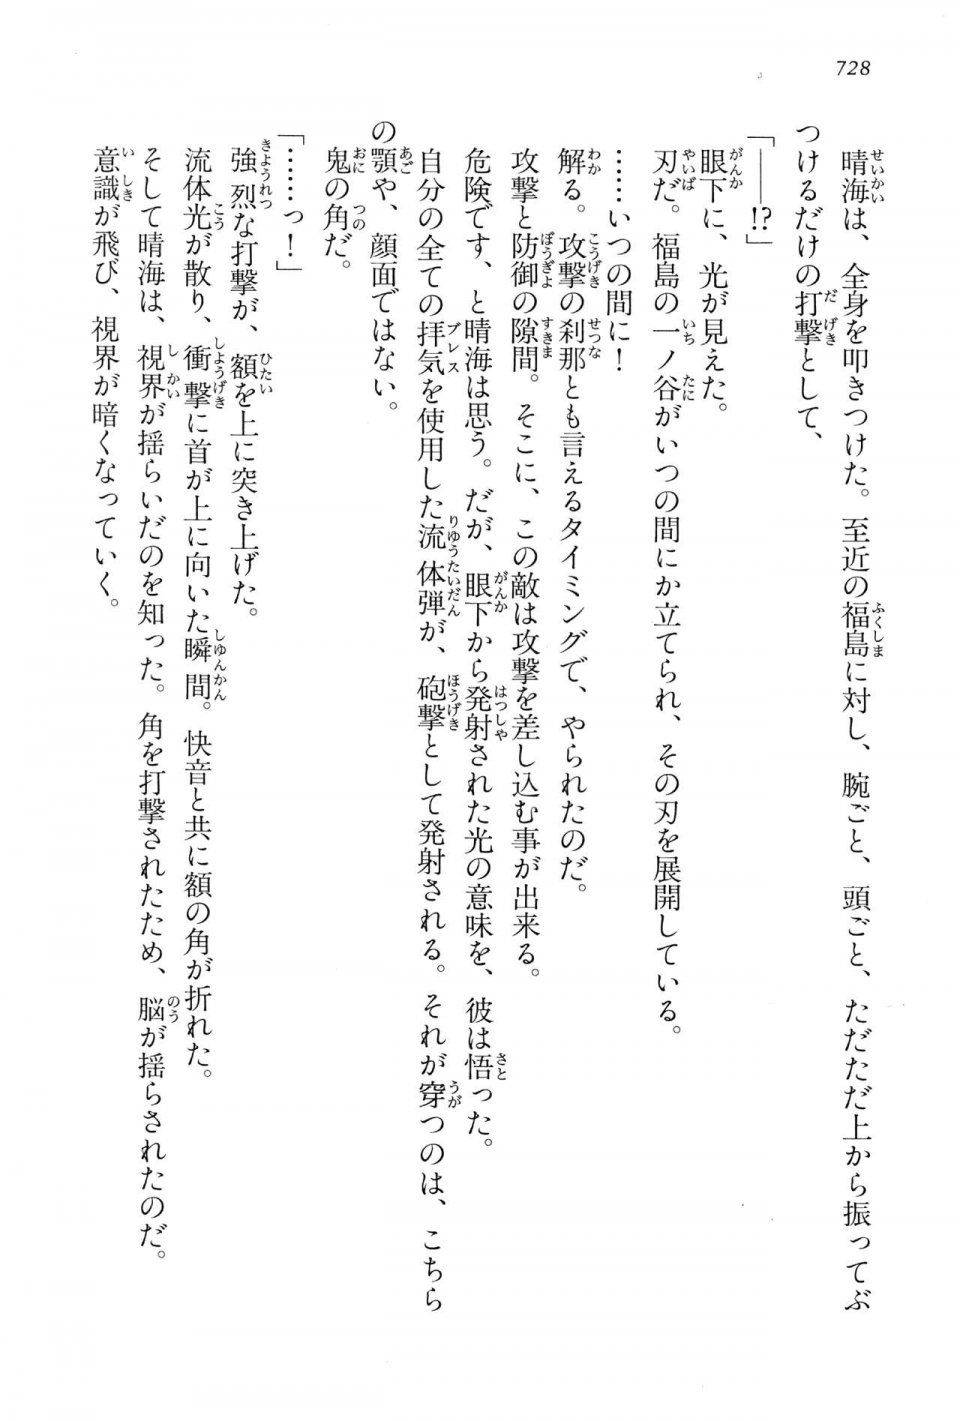 728
晴海は、全身を叩きつけた。至近の福島に対し、腕ごと、頭ごと、ただただ上から振ってぶ
つけるだけの打撃として、
「――!?」
眼下に、光が見えた。
刃だ。福島の一ノ谷がいつの間にか立てられ、その刃を展開している。
……いつの間に！
解る。攻撃の刹那とも言えるタイミングで、やられたのだ。
攻撃と防御の隙間。そこに、この敵は攻撃を差し込む事が出来る。
危険です、と晴海は思う。だが、眼下から発射された光の意味を、彼は悟った。
自分の全ての拝気を使用した流体弾が、砲撃として発射される。それが穿つのは、こちら
の顎や、顔面ではない。
鬼の角だ。
「……っ！」
強烈な打撃が、額を上に突き上げた。
流体光が散り、衝撃に首が上に向いた瞬間。快音と共に額の角が折れた。
そして晴海は、視界が揺らいだのを知った。角を打撃されたため、脳が揺らされたのだ。
意識が飛び、視界が暗くなっていく。